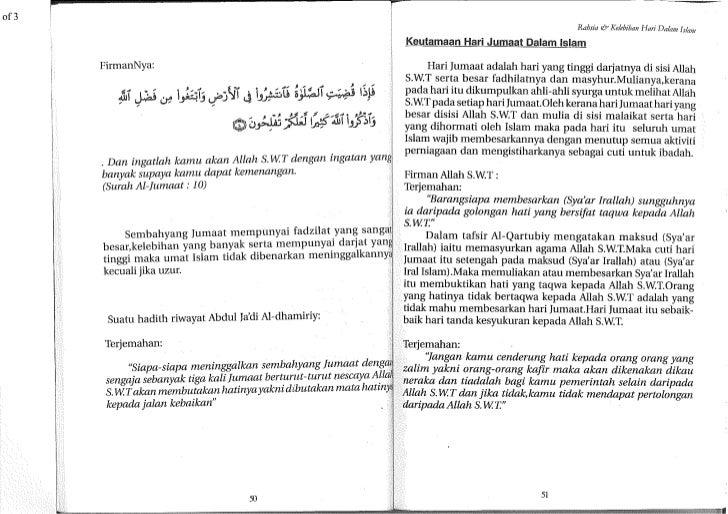 of 3
FirmanNya:
فَإِذَا قُضِيَتِ الصَّلَوٰةُ فَانتَشِرُوا فِي الْأَرْضِ وَابْتَغُوا مِن فَضْلِ اللَّهِ
وَاذْكُرُوا اللَّهَ كَثِيرًا لَّعَلَّكُمْ تُفْلِحُونَ ۝١٠
. Dan ingatlah kamu akan Allah S.W.T dengan ingatan yang
banyak supaya kamu dapat kemenangan.
(Surah Al-Jumaat : 10)
Sembahyang Jumaat mempunyai fadzilat yang sanga
besar,kelebihan yang banyak serta mempunyai darjat yang
tinggi maka umat Islam tidak dibenarkan meninggalkannya
kecuali jika uzur.
Suatu hadith riwayat Abdul Ja'di Al-dhamiriy:
Terjemahan:
"Siapa-siapa meninggalkan sembahyang Jumaat denga
sengaja sebanyak tiga kali Jumaat berturut-turut nescaya Alla
S.W.T akan membutakan hatinya yakni dibutakan mata hatiny
kepada jalan kebaikan"
50
Rahsia & Kelebihan Hari Dalam Islam
Keutamaan Hari Jumaat Dalam Islam
Hari Jumaat adalah hari yang tinggi darjatnya di sisi Allah
S.W.T serta besar fadhilatnya dan masyhur.Mulianya,kerana
pada hari itu dikumpulkan ahli-ahli syurga untuk melihat Allah
S.W.T pada setiap hari Jumaat.Oleh kerana hari Jumaat hari yang
besar disisi Allah S.W.T dan mulia di sisi malaikat serta hari
yang dihormati oleh Islam maka pada hari itu seluruh umat
Islam wajib membesarkannya dengan menutup semua aktiviti
perniagaan dan mengistiharkanya sebagai cuti untuk ibadah.
Firman Allah S.W.T :
Terjemahan:
"Barangsiapa membesarkan (Sya'ar Irallah) sungguhnya
ia daripada golongan hati yang bersifat taqwa kepada Allah
S.W.T."
Dalam tafsir Al-Qartubiy mengatakan maksud (Sya'ar
Irallah) iaitu memasyurkan agama Allah S.W.T.Maka cuti hari
Jumaat itu setengah pada maksud (Sya'ar Irallah) atau (Sya'ar
Iral Islam).Maka memuliakan atau membesarkan Sya'ar Irallah
itu membuktikan hati yang taqwa kepada Allah S.W.T.Orang
yang hatinya tidak bertaqwa kepada Allah S.W.T adalah yang
tidak mahu membesarkan hari Jumaat.Hari Jumaat itu sebaik-
baik hari tanda kesyukuran kepada Allah S.W.T.
Terjemahan:
"Jangan kamu cenderung hati kepada orang orang yang
zalim yakni orang-orang kafir maka akan dikenakan dikau
neraka dan tiadalah bagi kamu pemerintah selain daripada
Allah S.W.T dan jika tidak,kamu tidak mendapat pertolongan
daripada Allah S.W.T."
51